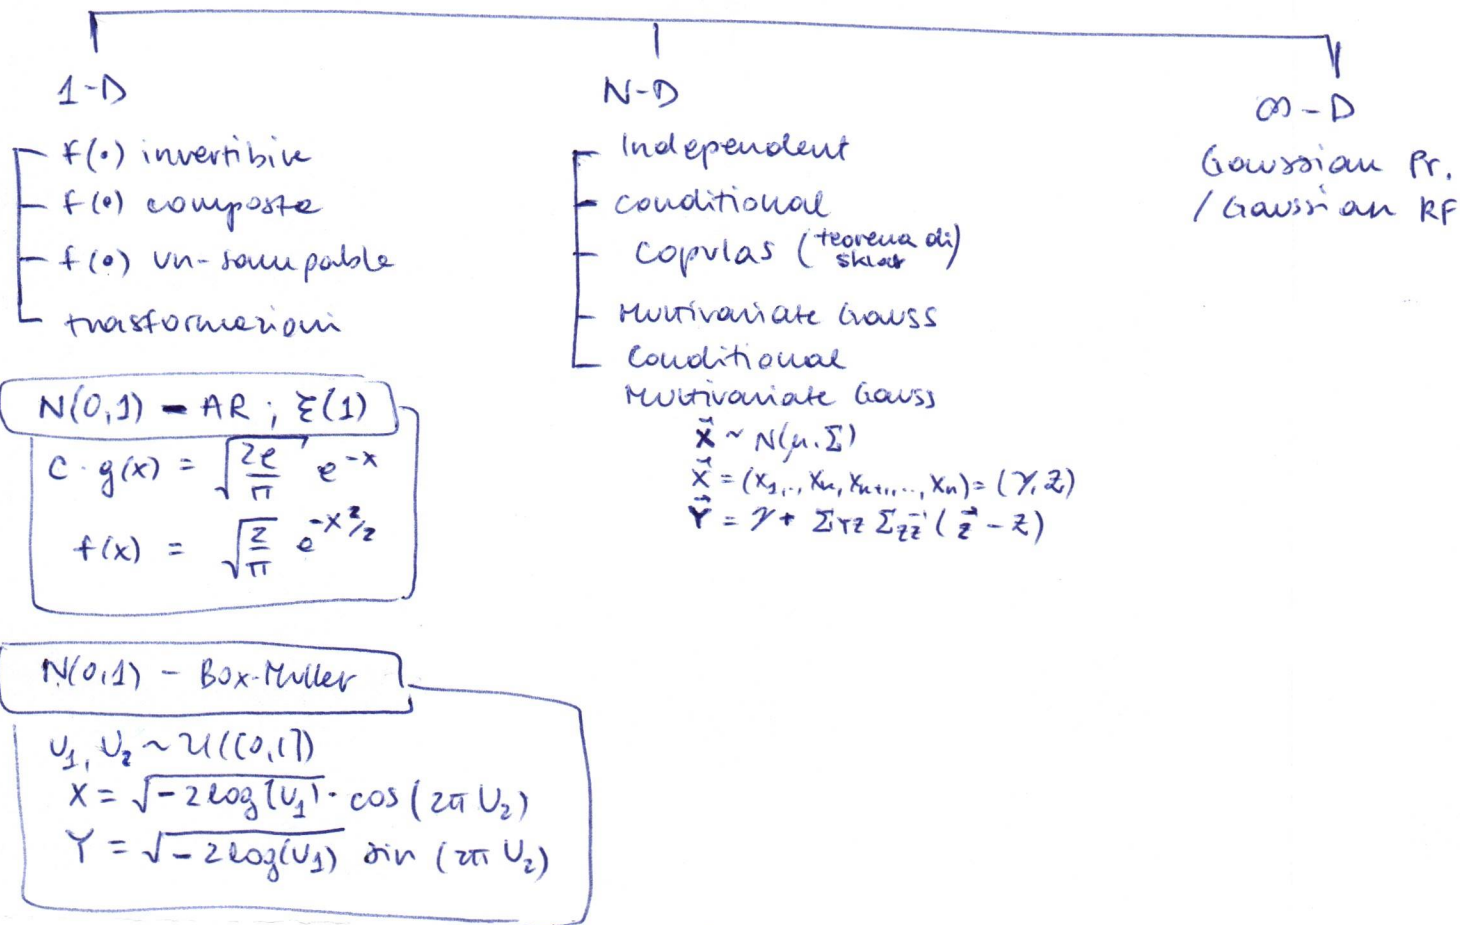 1-D
f(•) invertibile
f(•) composta
f(•) un-sampable
trasformazioni
N(0,1) - AR ; ξ(1)
C · g(x) = √(2e/π) e^-x
f(x) = √(2/π) e^-x²/2
N(0,1) - Box-Muller
U₁, U₂ ~ U([0,1])
X = √-2log(U₁) · cos(2π U₂)
Y = √-2log(U₁) sin (2π U₂)
N-D
Independent
conditional
copulas (teorema di sklar)
Multivariate Gauss
Conditional
Multivariate Gauss
X⃗ ~ N(μ, Σ)
X⃗ = (X₁,.., Xₖ, Xₖ₊₁,.., Xₙ) = (Y, Z)
Y⃗ = Y + Σ_YZ Σ_ZZ⁻¹ (z⃗ - Z)
∞-D
Gaussian Pr.
/ Gaussian RF